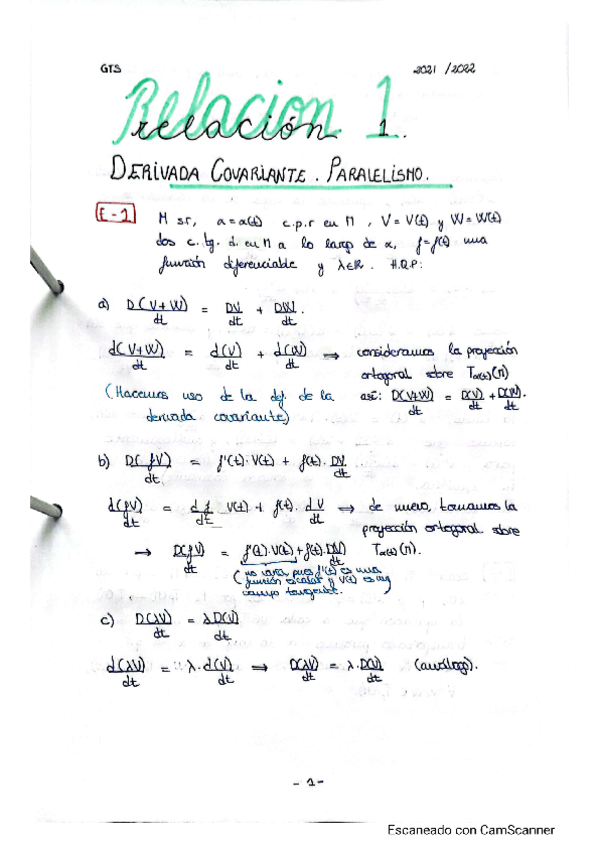 GTS 2021 / 2022
Relacion 1
relación 1.
DERIVADA COVARIANTE. PARALELISMO.
E-1 M s.r, α=α(t) c.p.r en M, V=V(t) y W=W(t)
dos c. tg. d. en M a lo largo de α, f=f(t) una
función diferenciable y λ∈ℝ. H.Q.P:
a) D(V+W)/dt = DV/dt + DW/dt.
d(V+W)/dt = d(V)/dt + d(W)/dt ⟹ consideramos la proyección
ortogonal sobre Tα(t)(M)
(Hacemos uso de la def. de la así: D(V+W)/dt = D(V)/dt + D(W)/dt.
derivada covariante)
b) D(fV)/dt = f'(t)·V(t) + f(t)·DV/dt
d(fV)/dt = df/dt V(t) + f(t)·dV/dt ⟹ de nuevo, tomamos la
proyección ortogonal sobre
→ D(fV)/dt = f'(t)·V(t)+f(t)·D(V)/dt Tα(t)(M).
(no varía pues f'(t) es una
función escalar y V(t) es un
campo tangente.
c) D(λV)/dt = λD(V)/dt
d(λV)/dt = λ·d(V)/dt ⟹ D(λV)/dt = λ·D(V)/dt (análogo).
- 1 -
Escaneado con CamScanner